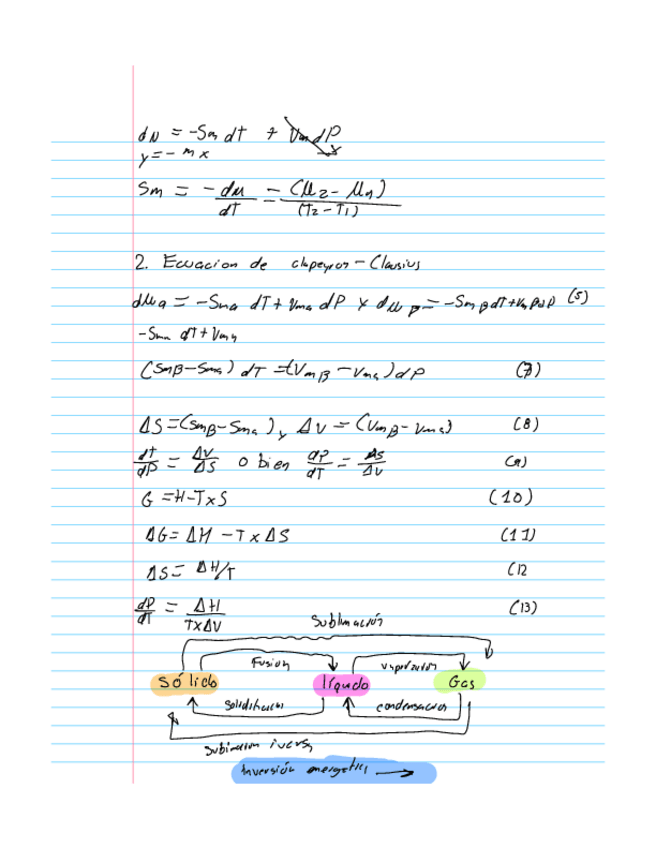 dμ = -Sm dT + Vm dP
y = - m x
Sm = -dμ/dT = -(μ2 - μ1)/(T2 - T1)
2. Ecuacion de clapeyron - Clausius
dμα = -Smα dT + Vmα dP y dμβ = -Smβ dT + Vmβ dP (5)
-Smα dT + Vmα
(Smβ - Smα) dT = (Vmβ - Vmα) dP (7)
ΔS = (Smβ - Smα), y ΔV = (Vmβ - Vmα) (8)
dt/dP = ΔV/ΔS o bien dP/dT = ΔS/ΔV (9)
G = H - T x S (10)
ΔG = ΔH - T x ΔS (11)
ΔS = ΔH/T (12
dP/dT = ΔH/TxΔV (13)
Sublimación
Fusion vaporizacion
Sólido líquido Gas
Solidificacion condensacion
Sublimacion inversa
Inversión energetica →